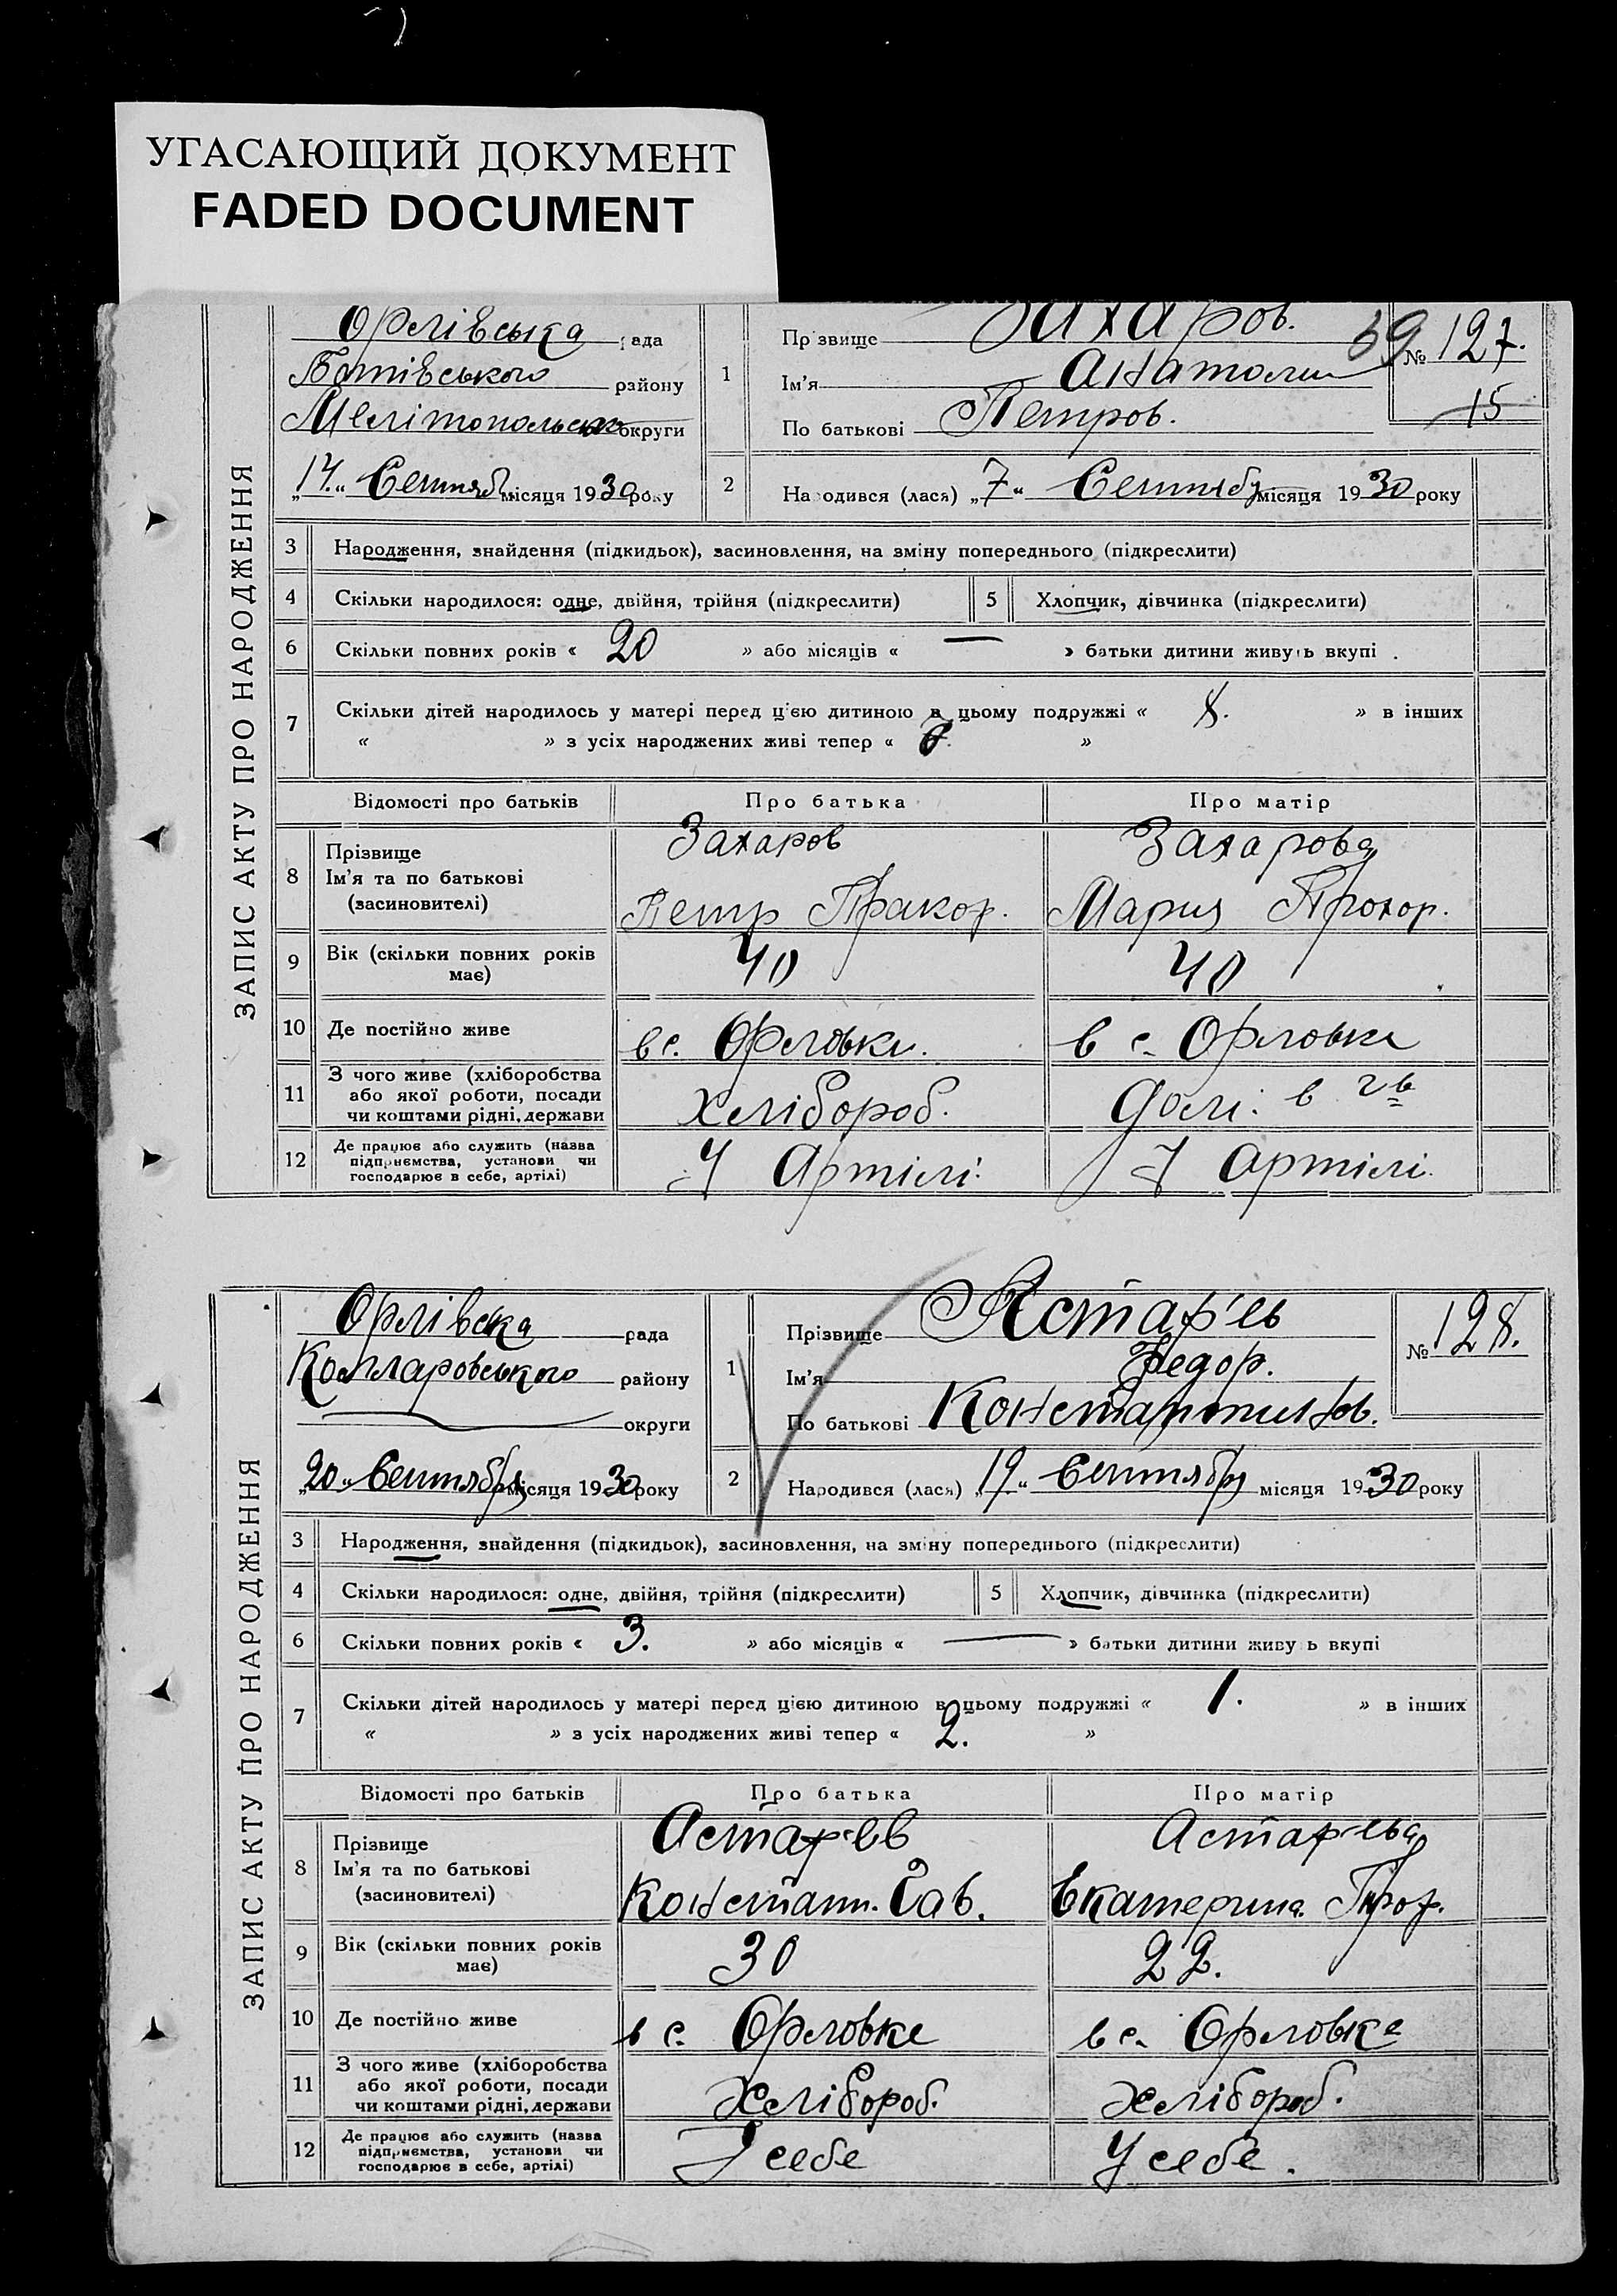 УГАСАЮЩИЙ ДОКУМЕНТ
FADED DOCUMENT
ЗАПИС АКТУ ПРО НАРОДЖЕННЯ
Орлівська рада
района району
Мелітопольсько округи
„14.“ Сентяб місяця 1930 року
1
Прізвище Захаров.
Ім’я Анатоли
По батькові Петров.
59
№ 127.
15
2
Народився (лася) „7“ Сентябр місяця 1930 року
3 Народження, знайдення (підкидьок), засиновлення, на зміну попереднього (підкреслити)
4 Скільки народилося: одне, двійня, трійня (підкреслити) 5 Хлопчик, дівчинка (підкреслити)
6 Скільки повних років « 20 » або місяців « — » батьки дитини живуть вкупі .
7 Скільки дітей народилось у матері перед цією дитиною в цьому подружжі « 8. » в інших
« » з усіх народжених живі тепер « »
Відомості про батьків Про батька Про матір
8 Прізвище Захаров Захарова
Ім’я та по батькові
(засиновителі) Петр Пракоф. Мария Прохор.
9 Вік (скільки повних років має) 40 40
10 Де постійно живе в с. Орловки. в с. Орловке
11 З чого живе (хліборобства
або якої роботи, посади
чи коштами рідні, держави Хлібороб. Домі. в
12 Де працює або служить (назва
підприємства, установи чи
господарює в себе, артілі) У Артілі. У артілі.
ЗАПИС АКТУ ПРО НАРОДЖЕННЯ
Орлівська рада
району
округи
„20“ Сентября місяця 1930 року
1
Прізвище Астарєв
Ім’я Федор.
По батькові Константинов.
№ 128.
2
Народився (лася) „19“ Сентября місяця 1930 року
3 Народження, знайдення (підкидьок), засиновлення, на зміну попереднього (підкреслити)
4 Скільки народилося: одне, двійня, трійня (підкреслити) 5 Хлопчик, дівчинка (підкреслити)
6 Скільки повних років « 3. » або місяців « — » батьки дитини живуть вкупі
7 Скільки дітей народилось у матері перед цією дитиною в цьому подружжі « 1. » в інших
« » з усіх народжених живі тепер « 2. »
Відомості про батьків Про батька Про матір
8 Прізвище Астарєв Астарєва
Ім’я та по батькові
(засиновителі) Констант. Сав. Екатерина Проф.
9 Вік (скільки повних років має) 30 22.
10 Де постійно живе в с. Орловке в с. Орловке
11 З чого живе (хліборобства
або якої роботи, посади
чи коштами рідні, держави Хлібороб. хлібороб.
12 Де працює або служить (назва
підприємства, установи чи
господарює в себе, артілі) У себе У себе.